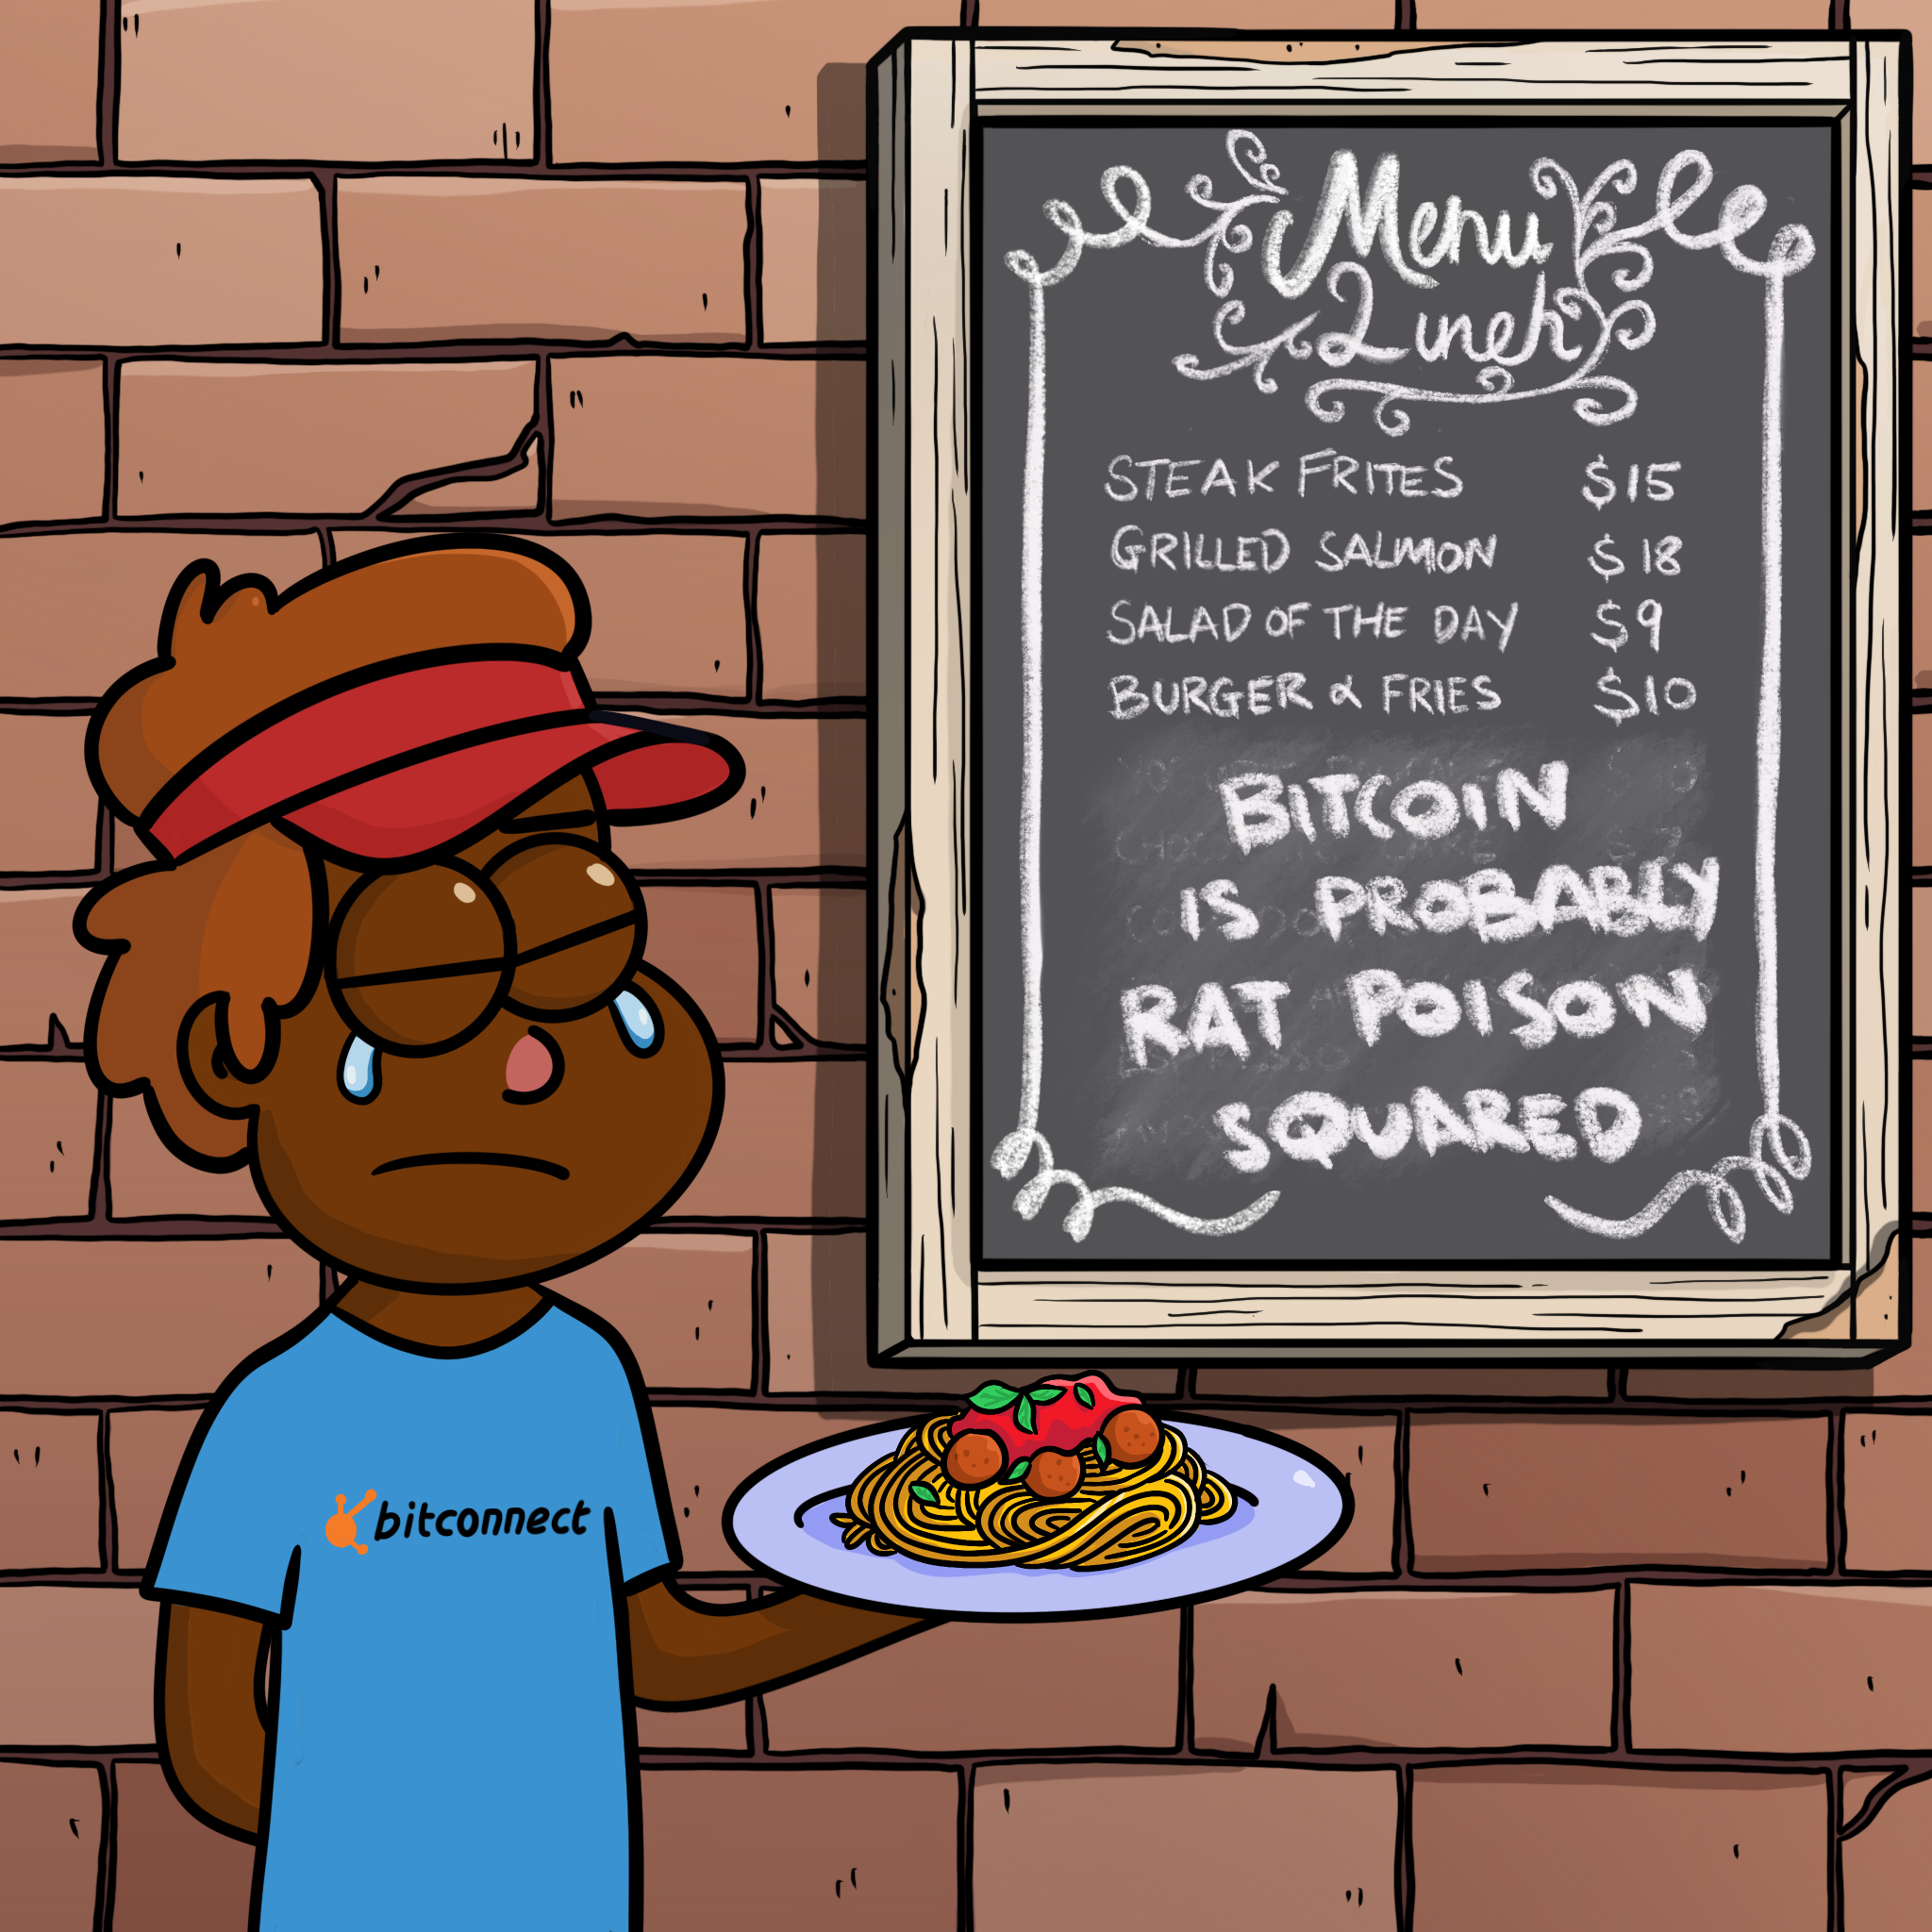 Menu
Lunch
STEAK FRITES $15
GRILLED SALMON $18
SALAD OF THE DAY $9
BURGER & FRIES $10
BITCOIN
IS PROBABLY
RAT POISON
SQUARED
bitconnect